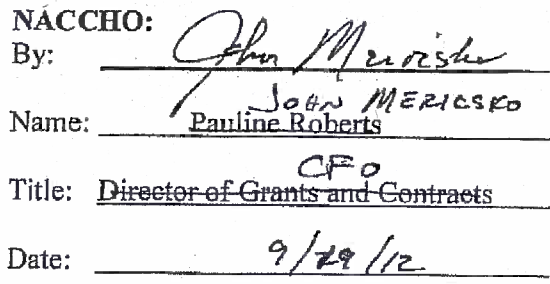 NACCHO:
By: John Mericsko
JOHN MERICSKO
Name: Pauline Roberts
CFO
Title: Director of Grants and Contracts
Date: 9/29/12